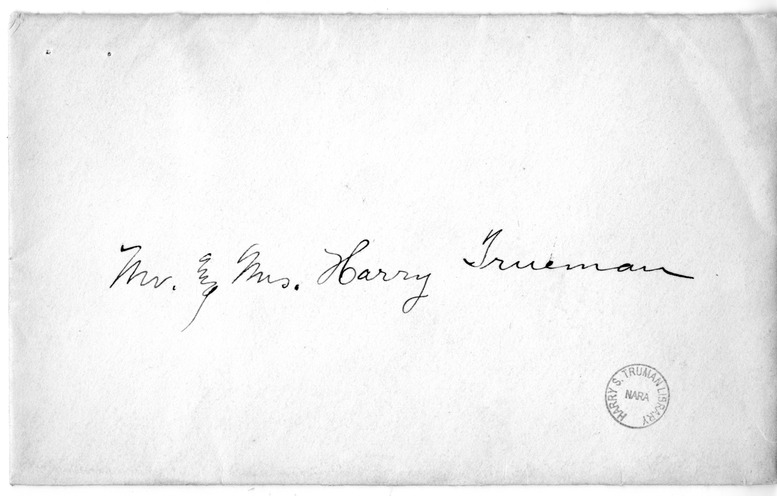 Mr. & Mrs. Harry Trueman
HARRY S. TRUMAN LIBRARY
NARA